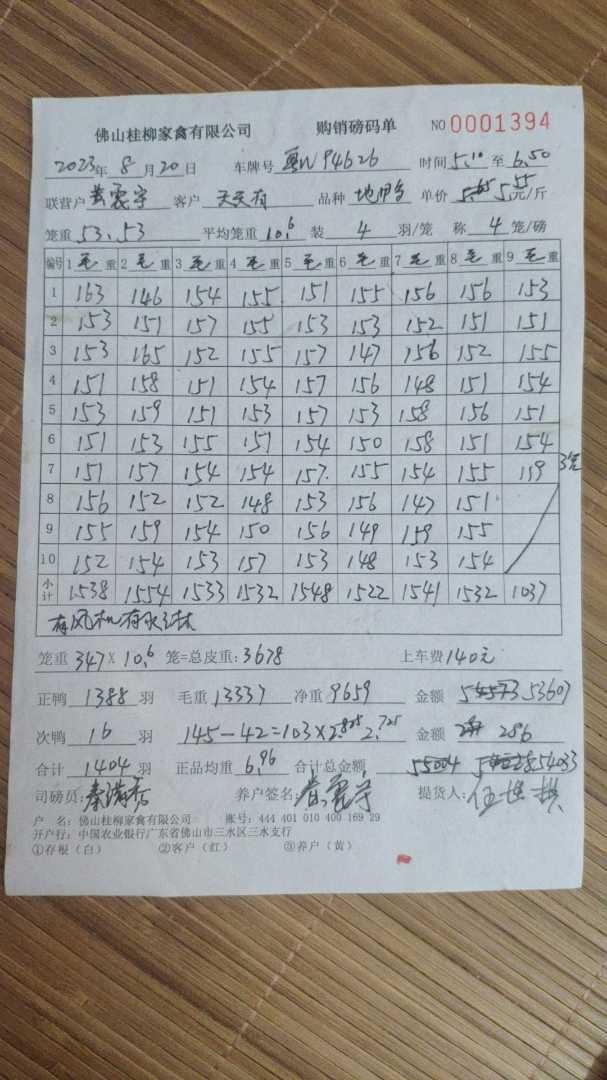 佛山桂柳家禽有限公司 购销磅码单 NO 0001394
2023年 8月20日 车牌号 粤W94626 时间 5.10 至 6.50
联营户 黄震宇 客户 天天有 品种 地甲鸟 单价 5.55元/斤
笼重 53.53 平均笼重 10.6 装 4 羽/笼 称 4 笼/磅
编号 1 毛重 2 毛重 3 毛重 4 毛重 5 毛重 6 毛重 7 毛重 8 毛重 9 毛重
1 163 146 154 155 151 155 156 156 153
2 153 151 157 155 153 153 152 151 151
3 153 165 152 155 157 147 156 152 155
4 151 158 151 154 157 156 148 151 154
5 153 159 151 153 157 153 158 156 151
6 151 153 155 151 154 150 158 151 154
7 151 157 154 154 157 155 154 155 119 3笼
8 156 152 152 148 153 156 147 151
9 155 159 154 150 156 149 159 155
10 152 154 153 157 153 148 153 154
小计 1538 1554 1533 1532 1548 1522 1541 1532 1037
有风机有水
笼重 347×10.6 笼=总皮重:3678 上车费 140元
正鸭 1388 羽 毛重 13337 净重 9659 金额 53607
次鸭 16 羽 145-42=103×2.825 2.725 金额 286
合计 1404 羽 正品均重 6.96 合计总金额 54033
司磅员: 养户签名:黄震宇 提货人:伍
户 名:佛山桂柳家禽有限公司 账号:444 401 010 400 169 29
开户行:中国农业银行广东省佛山市三水区三水支行
①存根(白) ②客户(红) ③养户(黄)